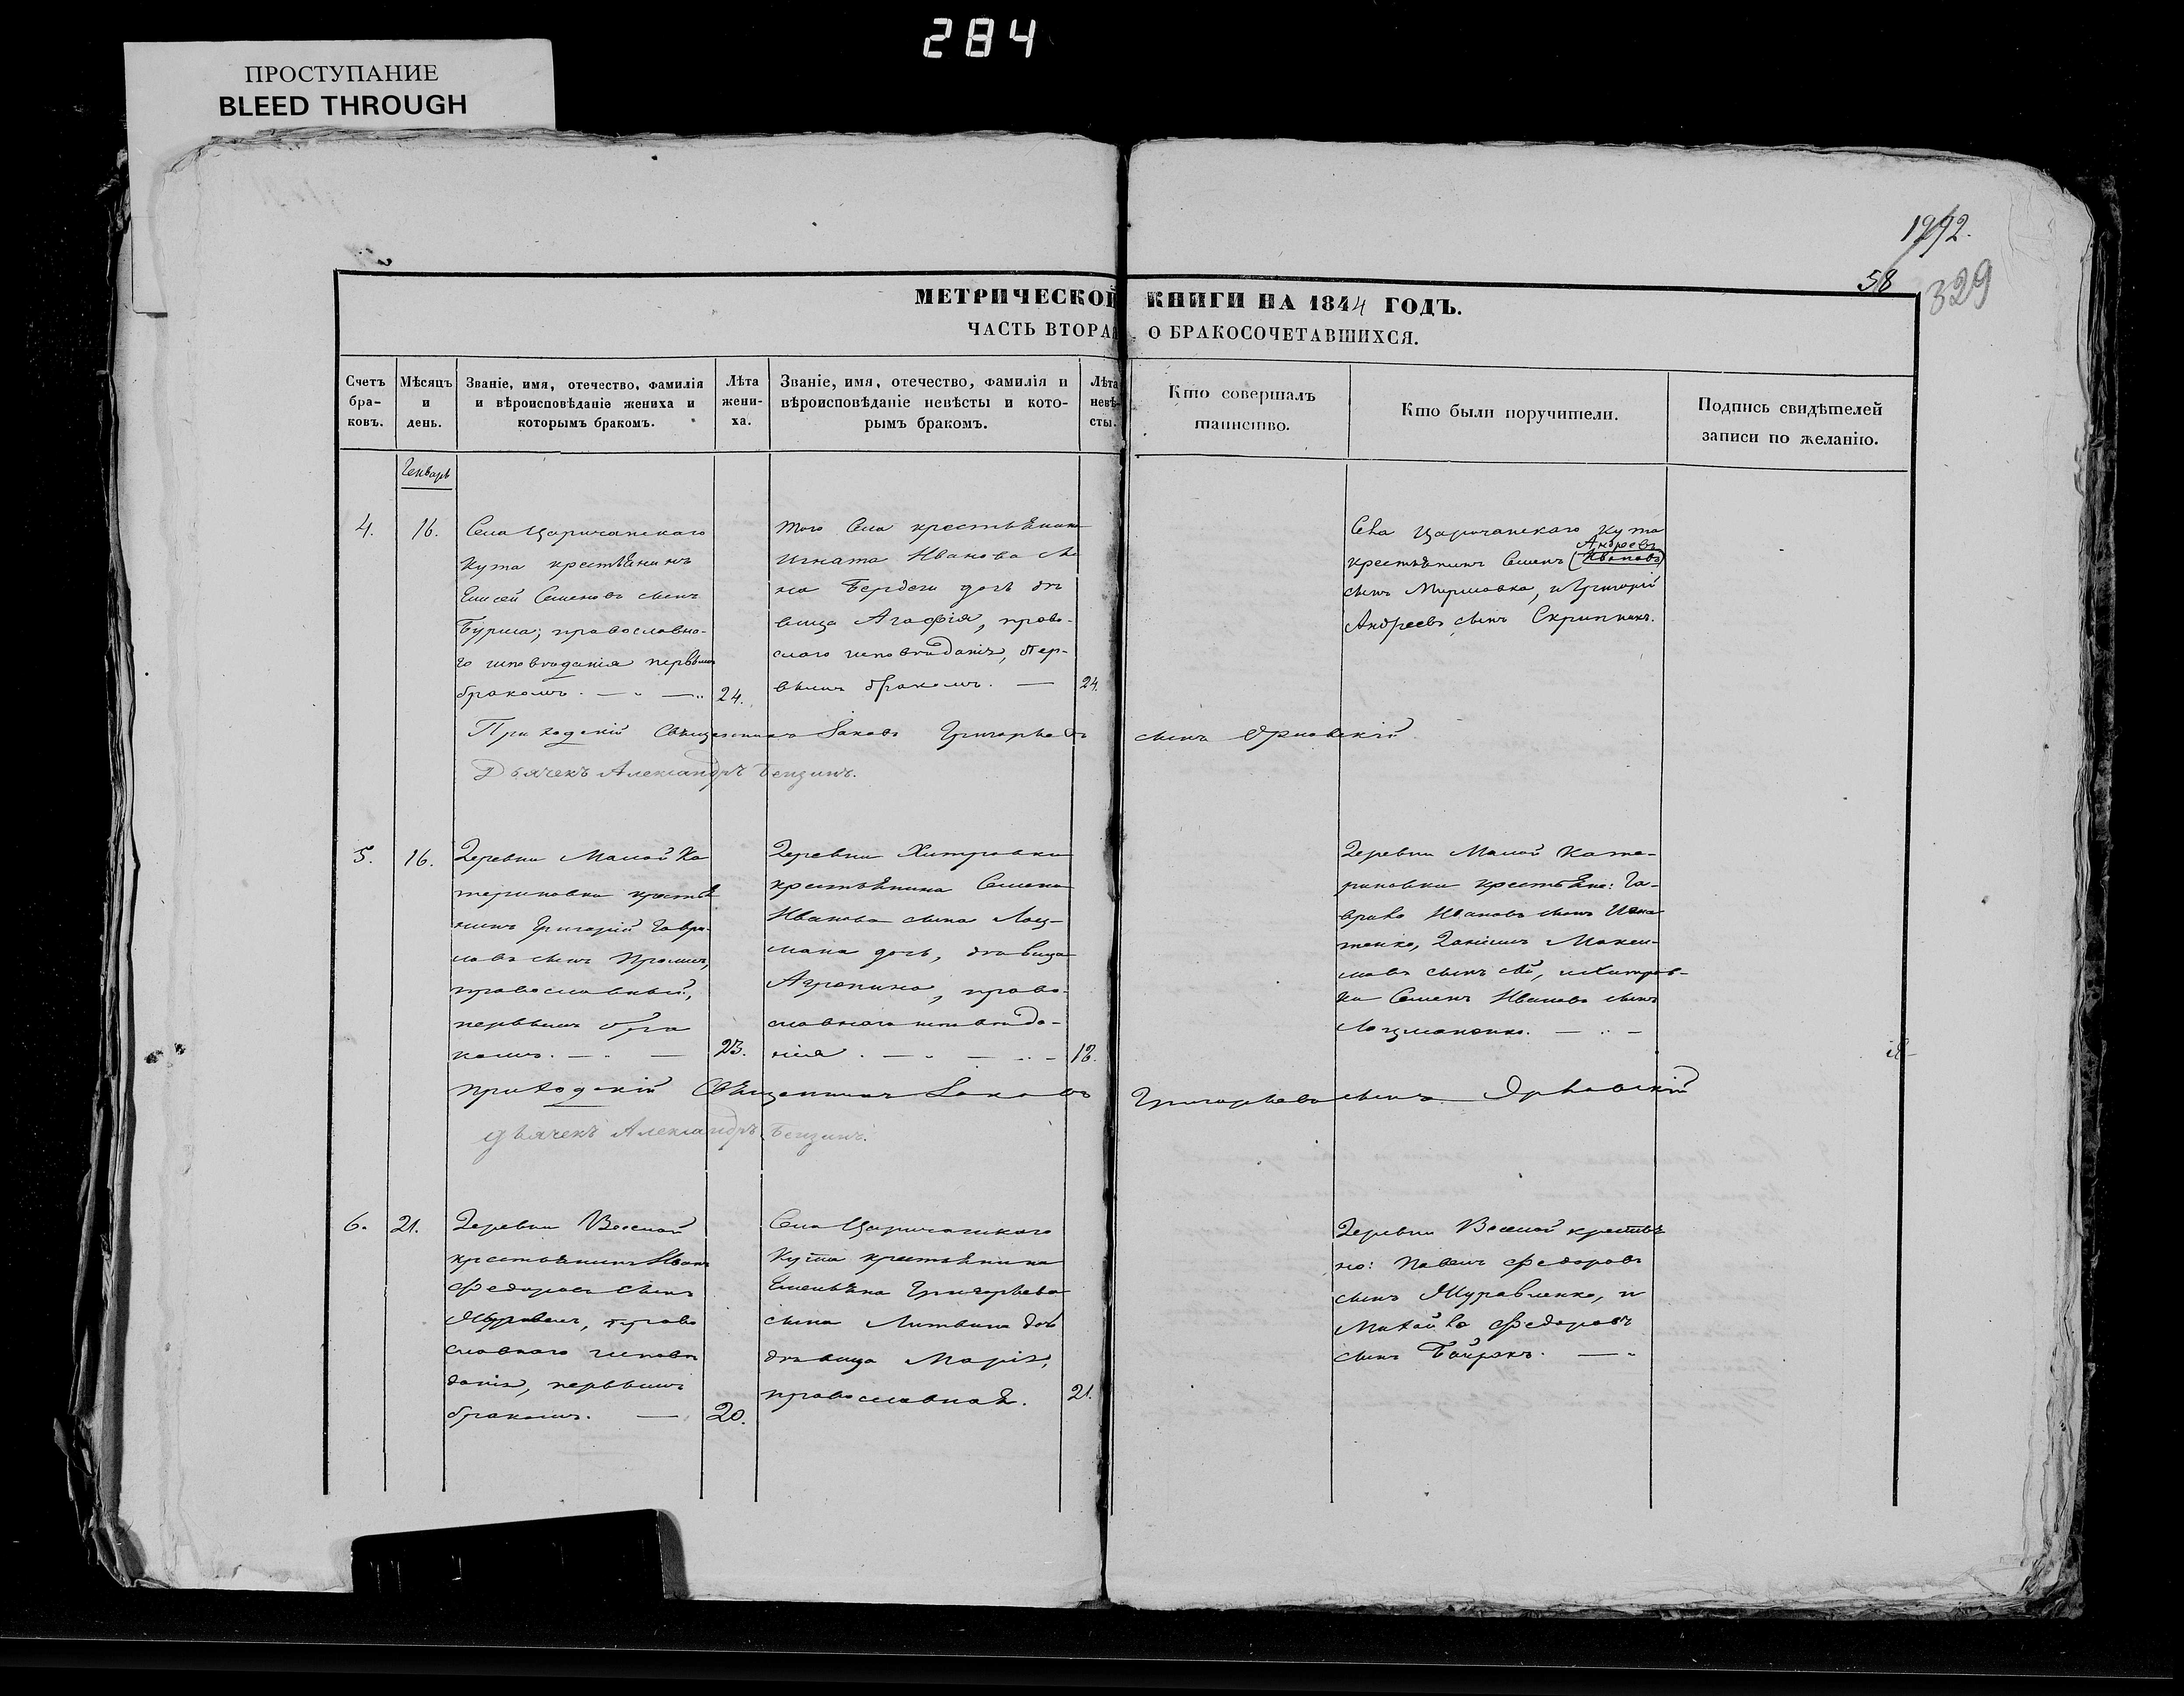 284
ПРОСТУПАНИЕ
BLEED THROUGH
1992.
58
329
МЕТРИЧЕСКОЙ КНИГИ НА 1844 ГОДЪ.
ЧАСТЬ ВТОРАЯ О БРАКОСОЧЕТАВШИХСЯ.
Счетъ
бра-
ковъ.
Мѣсяцъ
и
день.
Званіе, имя, отечество, фамилія
и вѣроисповѣданіе жениха и
которымъ бракомъ.
Лѣта
жени-
ха.
Званіе, имя, отечество, фамилія и
вѣроисповѣданіе невѣсты и кото-
рымъ бракомъ.
Лѣта
невѣ-
сты.
Кто совершалъ
таинство.
Кто были поручители.
Подпись свидѣтелей
записи по желанію.
Генварь
4.
16.
Села Царичанскаго
Кута крестьянинъ
Елисей Семеновъ сынъ
Бурма; православна-
го исповѣданія первымъ
бракомъ.
24.
того Села крестьянина
Игната Иванова сы
на дочь дѣ
вица Агафія, право-
исповѣданія, пер-
вымъ бракомъ.
24.
Села Царичанскаго Кута
Андреевъ
крестьянинъ Семенъ (Ивановъ)
сынъ и Григорій
Андреевъ сынъ Скрипникъ.
Приходскій Священникъ Іаковъ Григорьевъ сынъ
Дьячекъ Александръ
5.
16.
Деревни Малой Ка
териновки крестья
нинъ Григорій Гаври-
ловъ сынъ
православный,
первымъ бра
комъ.
23.
Деревни Хитровки
крестьянина Семена
Иванова сына Лоц-
мана дочь, дѣвица
Агрипина, право-
славнаго исповѣда-
нія
18.
Деревни Малой Кате-
риновки крестьяне: Га-
врило Ивановъ сынъ
Даніилъ Макси-
мовъ сынъ
ки Семенъ Ивановъ сынъ
Лоцманенко.
Приходскій Священникъ Іаковъ Григорьевъ сынъ
дьячекъ Александръ
6.
21.
Деревни Веселой
крестьянинъ Иванъ
Федоровъ сынъ
Журавель, право
славнаго исповѣ
данія, первымъ
бракомъ.
20.
Села Царичанскаго
Кута крестьянина
Емельяна Григорьева
сына Литвина дочь
дѣвица Марія,
православная.
21.
Деревни Веселой крестья
не: Павелъ Федоровъ
сынъ Журавленко, и
Михайло Федоровъ
сынъ Байракъ.